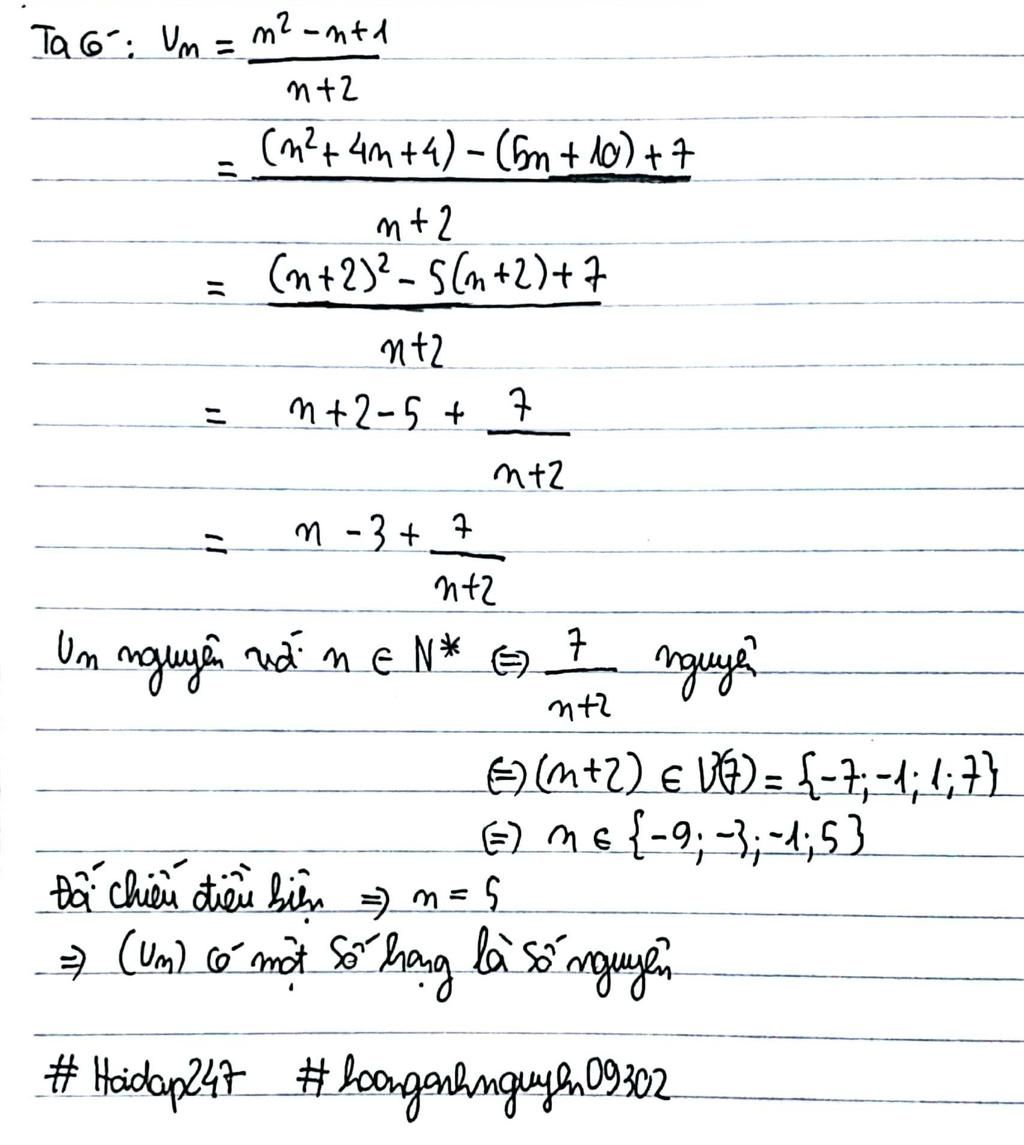 Ta có: Un = n² - n + 1 / n + 2
= (n² + 4n + 4) - (5n + 10) + 7 / n + 2
= (n+2)² - 5(n+2) + 7 / n+2
= n + 2 - 5 + 7 / n+2
= n - 3 + 7 / n+2
Un nguyên với n ∈ N* ⇔ 7 / n+2 nguyên
⇔ (n+2) ∈ Ư(7) = {-7; -1; 1; 7}
⇔ n ∈ {-9; -3; -1; 5}
Đối chiếu điều kiện ⇒ n = 5
⇒ (Un) có một số hạng là số nguyên
# Hoidap247 # hoanganhnguyen09302